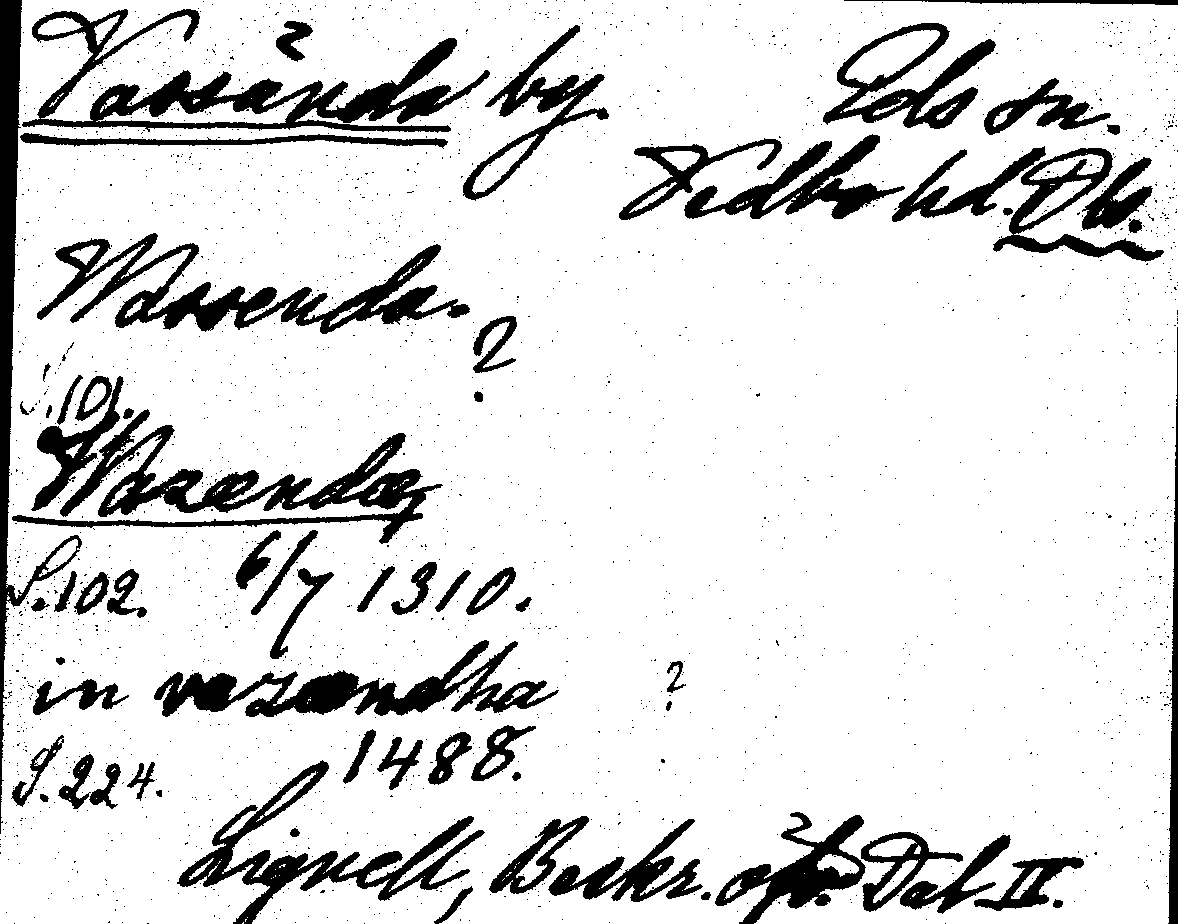 Vassända by. Eds sn.
Vedbo hd. Dls.
Wassenda.
?
S. 101.
Wazændæ
S. 102. 6/7 1310.
in vazændha ?
1488.
S. 224.
Lignell, Beskr. öfv. Dal II.